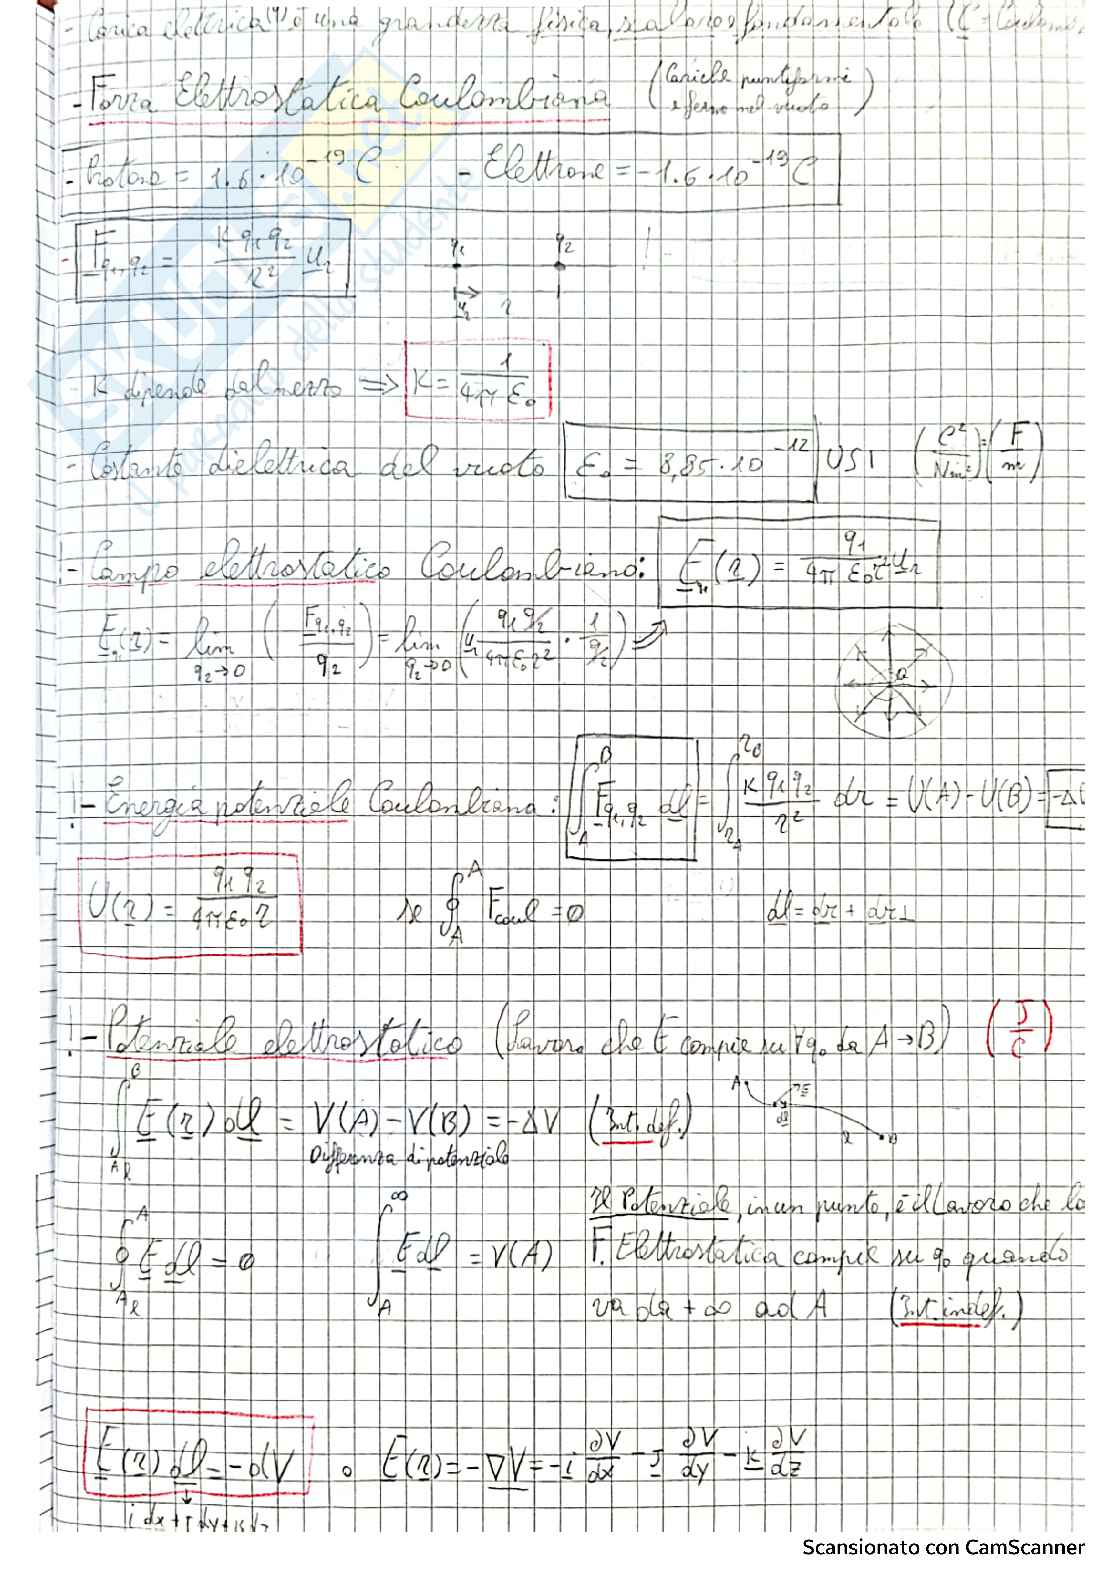 - Carica elettrica (q) è una grandezza fisica, scalare, fondamentale (C = Coulomb
- Forza Elettrostatica Coulombiana (Cariche puntiformi e ferme nel vuoto)
- Protone = 1.6 · 10⁻¹⁹ C - Elettrone = -1.6 · 10⁻¹⁹ C
- F_q₁,q₂ = K q₁ q₂ / r² u_r q₁ q₂ !
u_r r
- K dipende dal mezzo => K = 1 / 4π ε₀
- Costante dielettrica del vuoto ε₀ = 8,85 · 10⁻¹² USI (C² / Nm²) = (F / m)
!- Campo elettrostatico Coulombiano: E(r) = q₁ / 4π ε₀ r² u_r
E(r) = lim q₂→0 (F_q₁,q₂ / q₂) = lim q₂→0 (u_r q₁ q₂ / 4π ε₀ r² · 1 / q₂)
Q
!- Energia potenziale Coulombiana: ∫_A^B F_q₁,q₂ dl = ∫_rA^rB K q₁ q₂ / r² dr = U(A) - U(B) = -ΔU
U(r) = q₁ q₂ / 4π ε₀ r se ∮_A^A F_coul = 0 dl = dr + dr⊥
!- Potenziale elettrostatico (Lavoro che E compie su ∀q₀ da A → B) (J / C)
∫_A^B E(r) dl = V(A) - V(B) = -ΔV (Int. def.)
Differenza di potenziale
A E dl l B
∮_A^A E dl = 0 ∫_A^∞ E dl = V(A)
Il Potenziale, in un punto, è il Lavoro che la
F. Elettrostatica compie su q₀ quando
va da +∞ ad A (Int. indef.)
E(r) dl = -dV o E(r) = -∇V = -i ∂V/dx - J ∂V/dy - k ∂V/dz
i dx + J dy + k dz
Scansionato con CamScanner